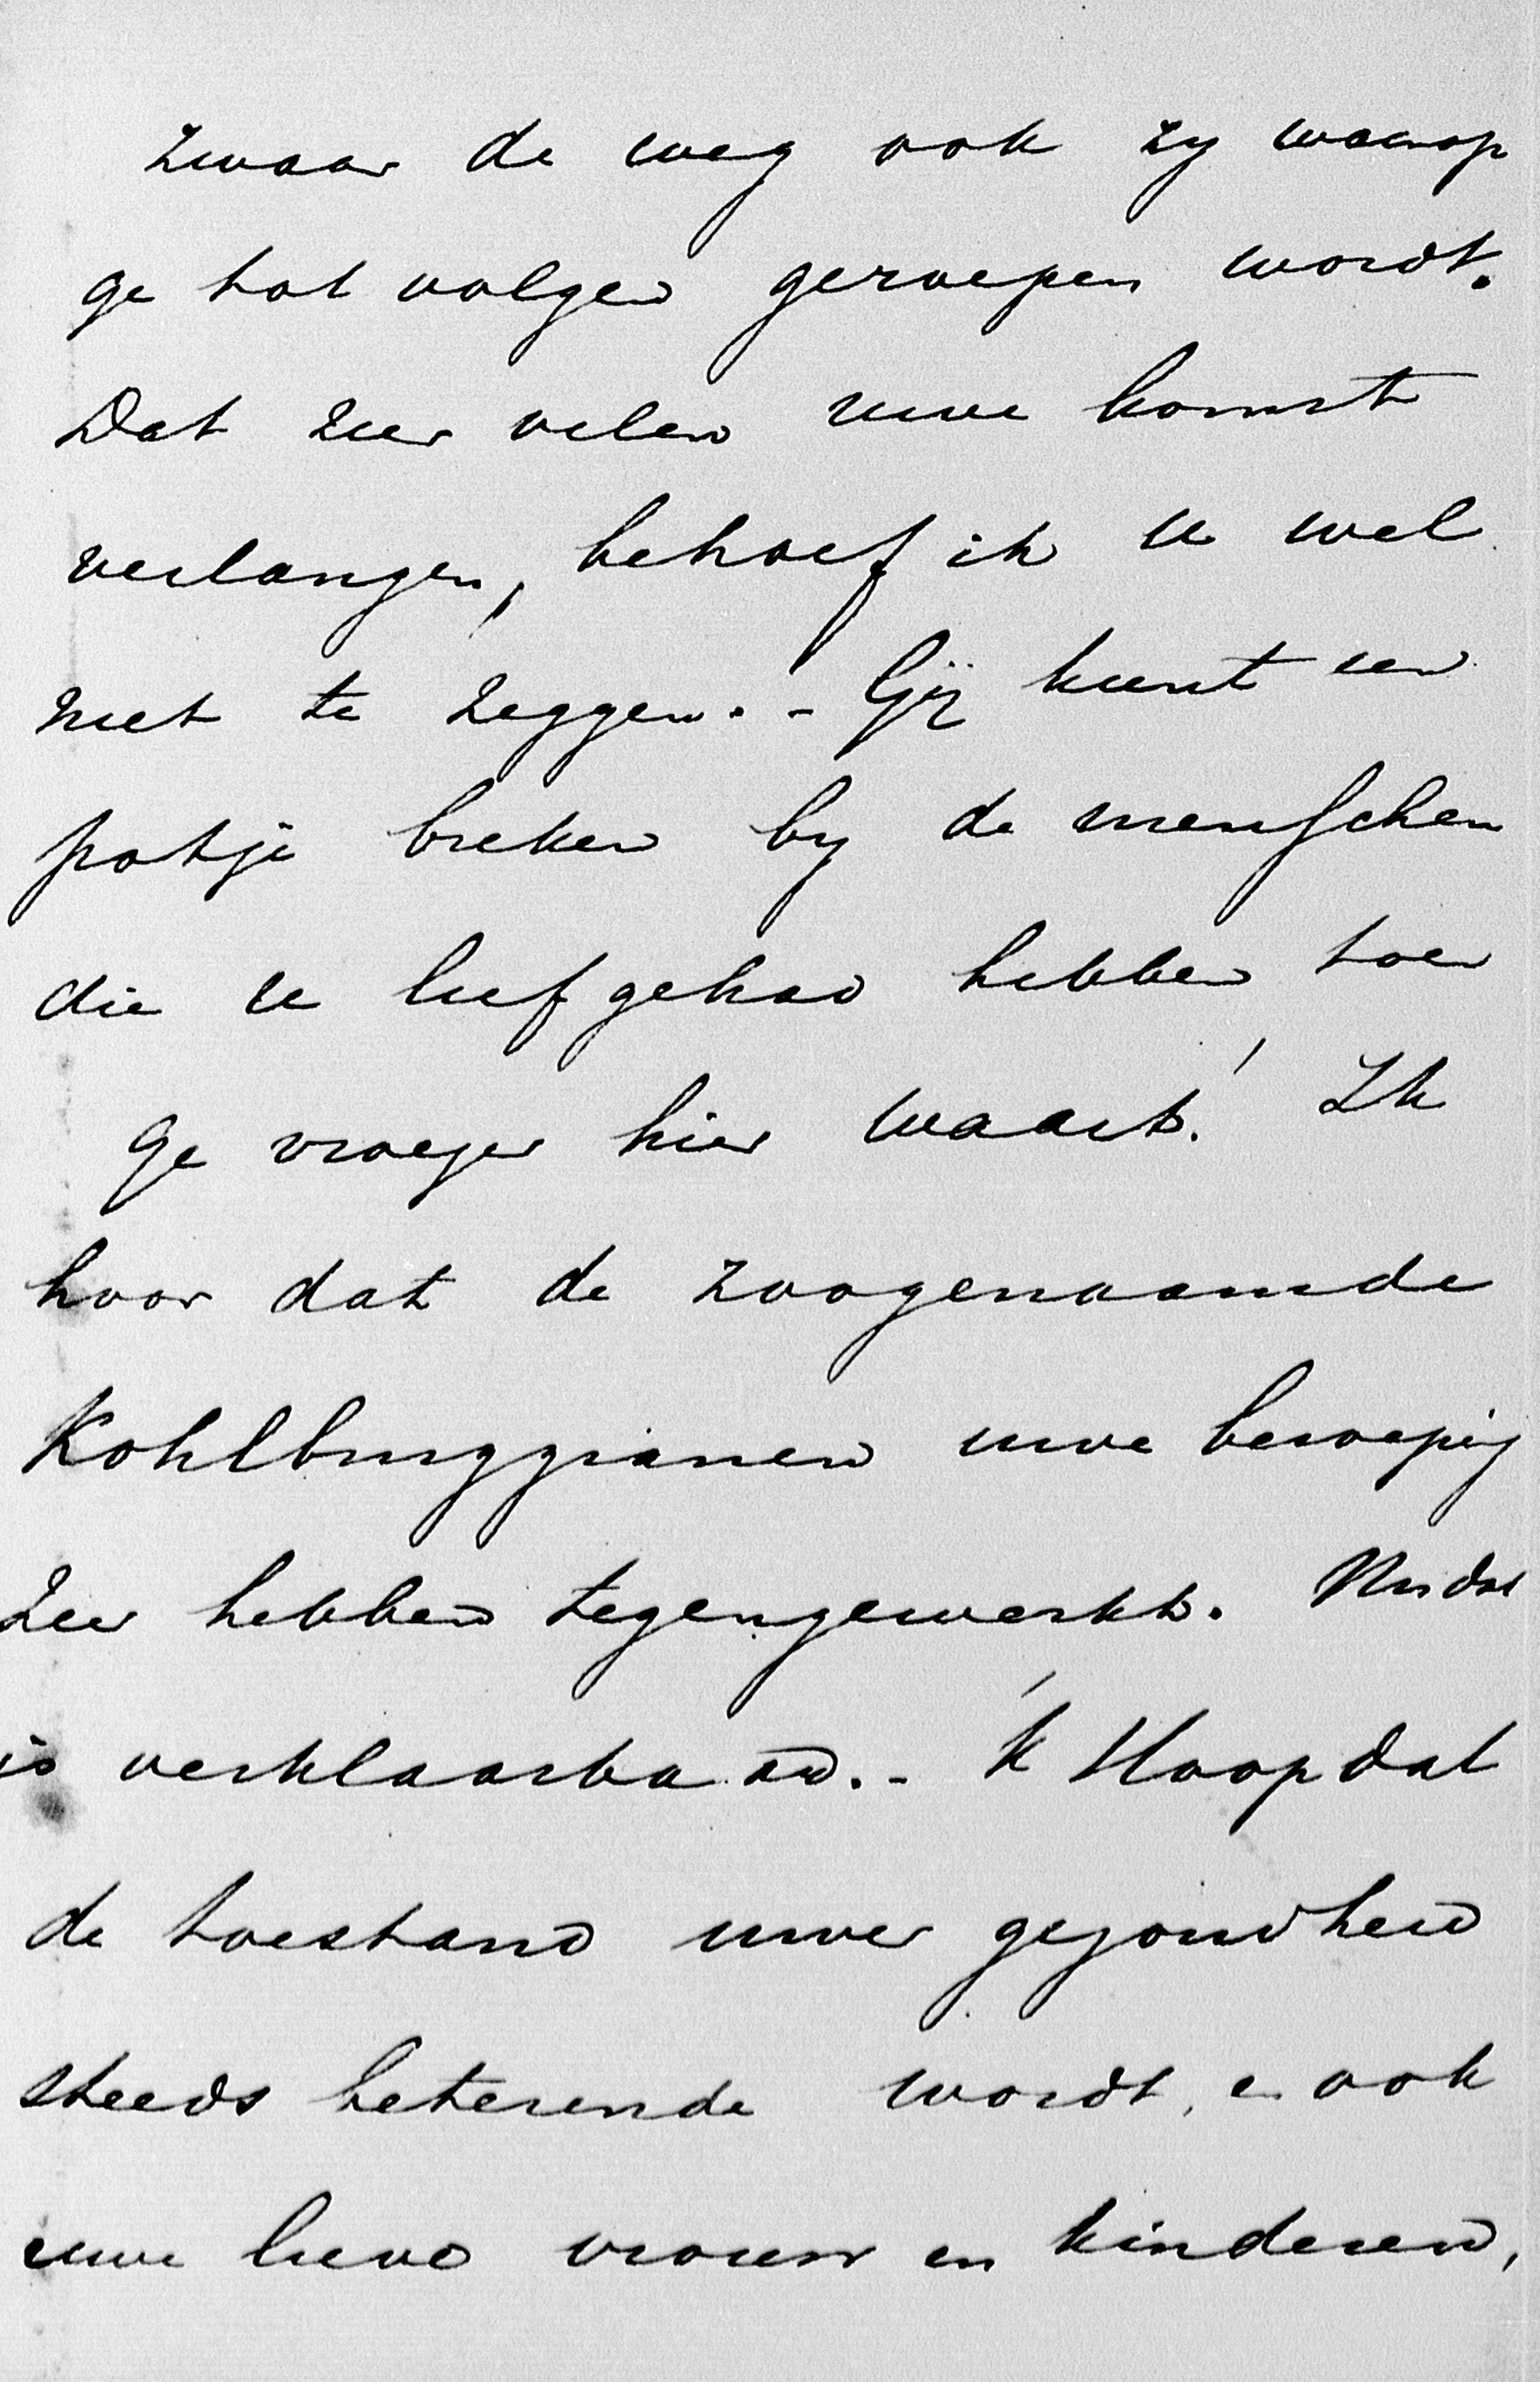 zwaar de weg ook zy waarop
ge tot volgen geroepen wordt.
Dat zeer velen uwe komst
verlangen, behoef ik U wel
niet te zeggen. - Gij kunt een
potje breken by de menschen
die U lief gehad hebben toen
ge vroeger hier waart! Ik
hoor dat de zoogenaamde
Kohlbruggianen uwe beroeping
zeer hebben tegengewerkt. Nu dat
is verklaarbaar. - 'k Hoop dat
de toestand uwer gezondheid
steeds beterende wordt, en ook
uwe lieve vrouw en kinderen,